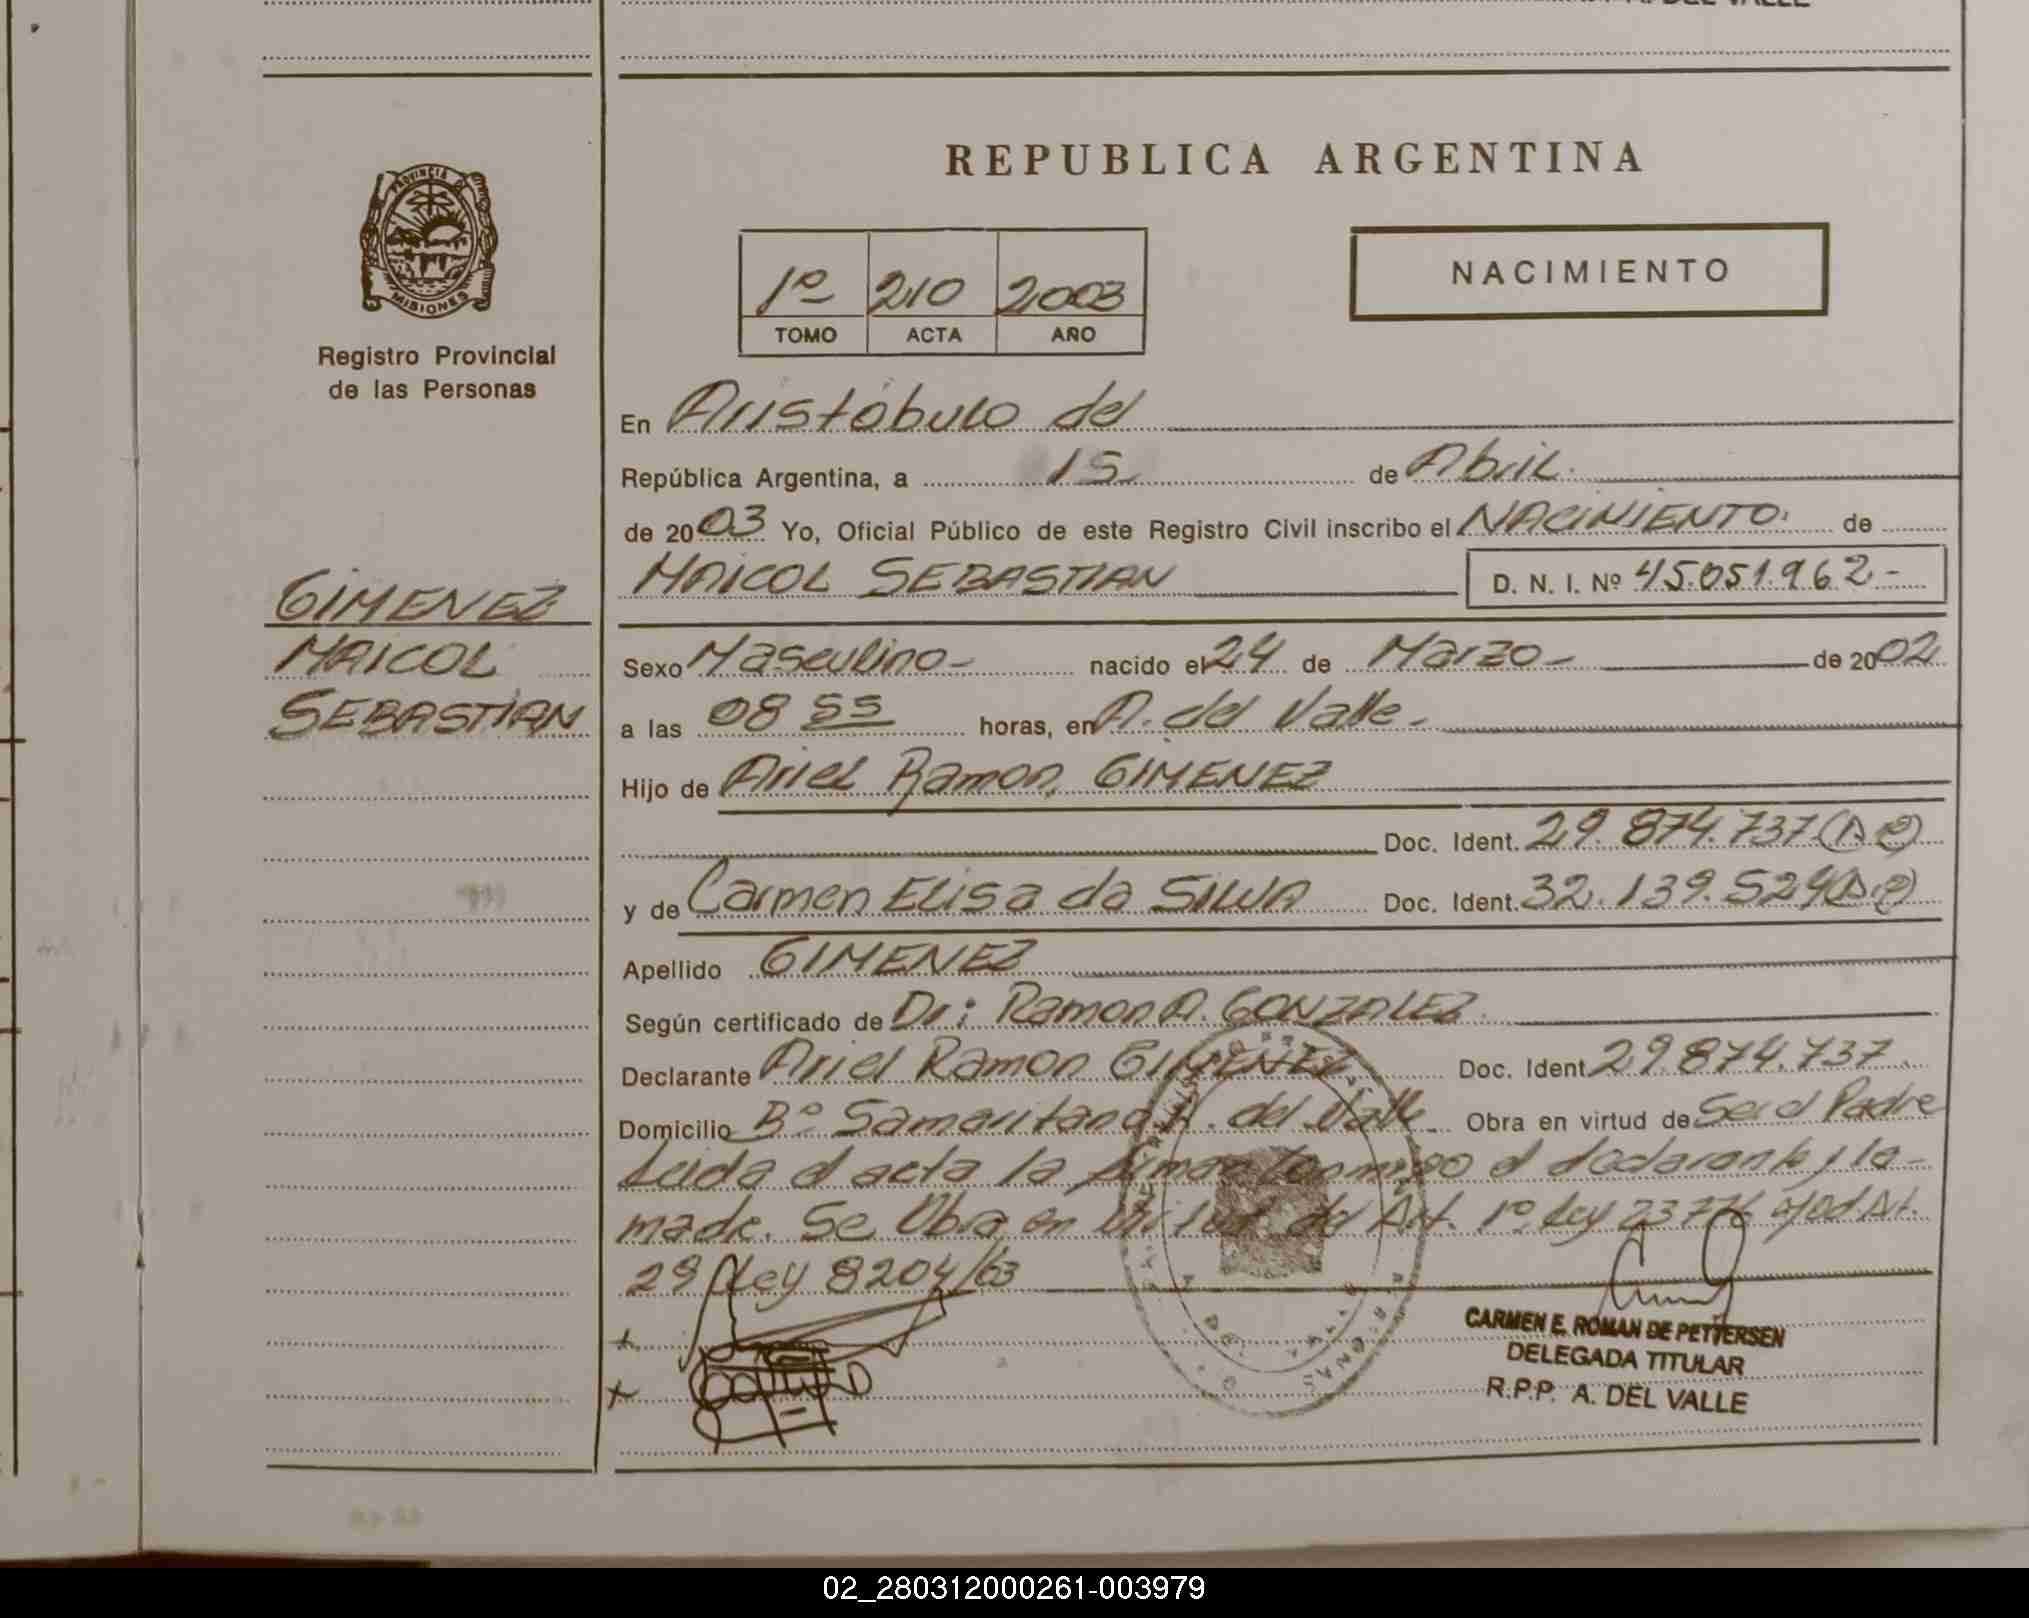 A. DEL VALLE
REPUBLICA ARGENTINA
PROVINCIA DE
MISIONES
Registro Provincial
de las Personas
1º 210 2003
TOMO ACTA AÑO
NACIMIENTO
En Aristóbulo del
República Argentina, a 15 de Abril.
de 2003 Yo, Oficial Público de este Registro Civil inscribo el NACIMIENTO. de
MAICOL SEBASTIAN D. N. I. Nº 45.051.962-
GIMENEZ
MAICOL
SEBASTIAN
Sexo Masculino- nacido el 24 de Marzo- de 2002
a las 08 55 horas, en A. del Valle.
Hijo de Ariel Ramon GIMENEZ
Doc. Ident. 29.874.737
y de Carmen Elisa da SILVA Doc. Ident. 32.139.529
Apellido GIMENEZ
Según certificado de Dr: Ramon A. GONZALEZ.
Declarante Ariel Ramon GIMENEZ Doc. Ident 29.874.737.
Domicilio Bº Samaritano A. del Valle. Obra en virtud de Ser el Padre
Leida el acta la firman conmigo el declarante y la-
madre. Se Obra en virtud del Art. 1º Ley 23776 del Art.
29 Ley 8204/63
x
x
CARMEN E. ROMAN DE PETTERSEN
DELEGADA TITULAR
R.P.P. A. DEL VALLE
02_280312000261-003979